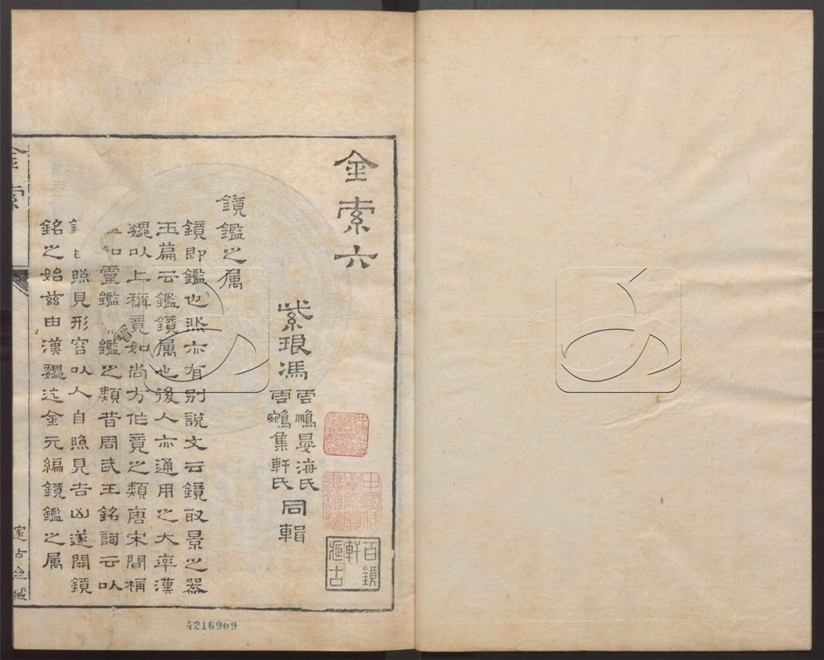 金索六
紫琅馮
雲鵬晏海氏
雲鵷集軒氏
同輯
鏡鑑之屬
鏡即鑑也然亦有別說文云鏡取景之器
玉篇云鑑鏡属也後人亦通用之大率漢
魏以上稱竟如尚方作竟之類唐宋間稱
鑑如靈鑑 鑑之類昔周武王銘詞云以
照見形容以人自照見吉凶遂開鏡
銘之始茲由漢魏迄金元編鏡鑑之属
金索
百鏡軒
古
4216909